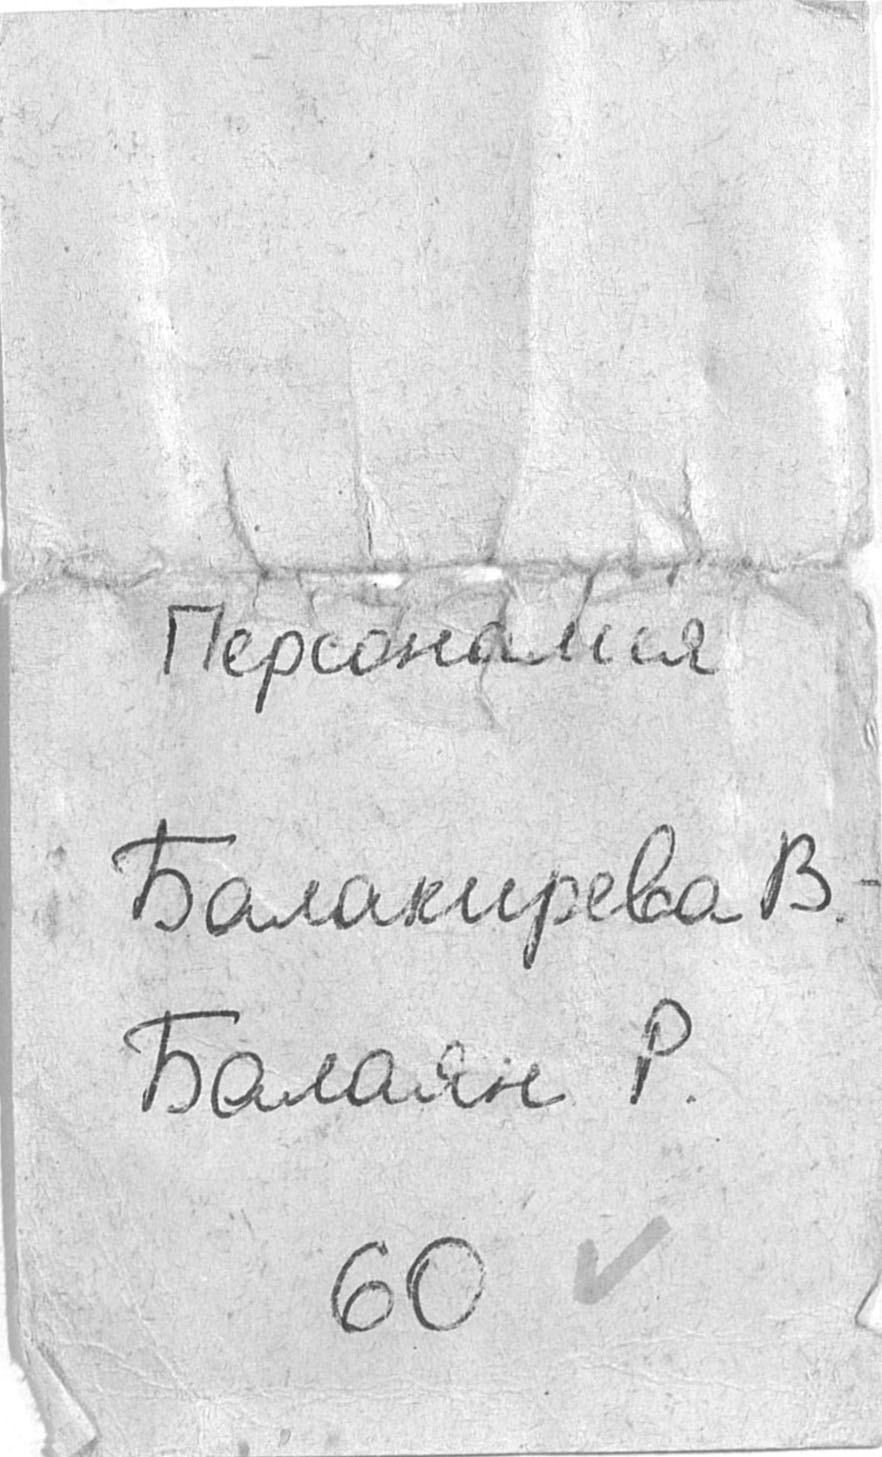 Персоналия
Балакирева В. -
Балаян Р.
60 ✓